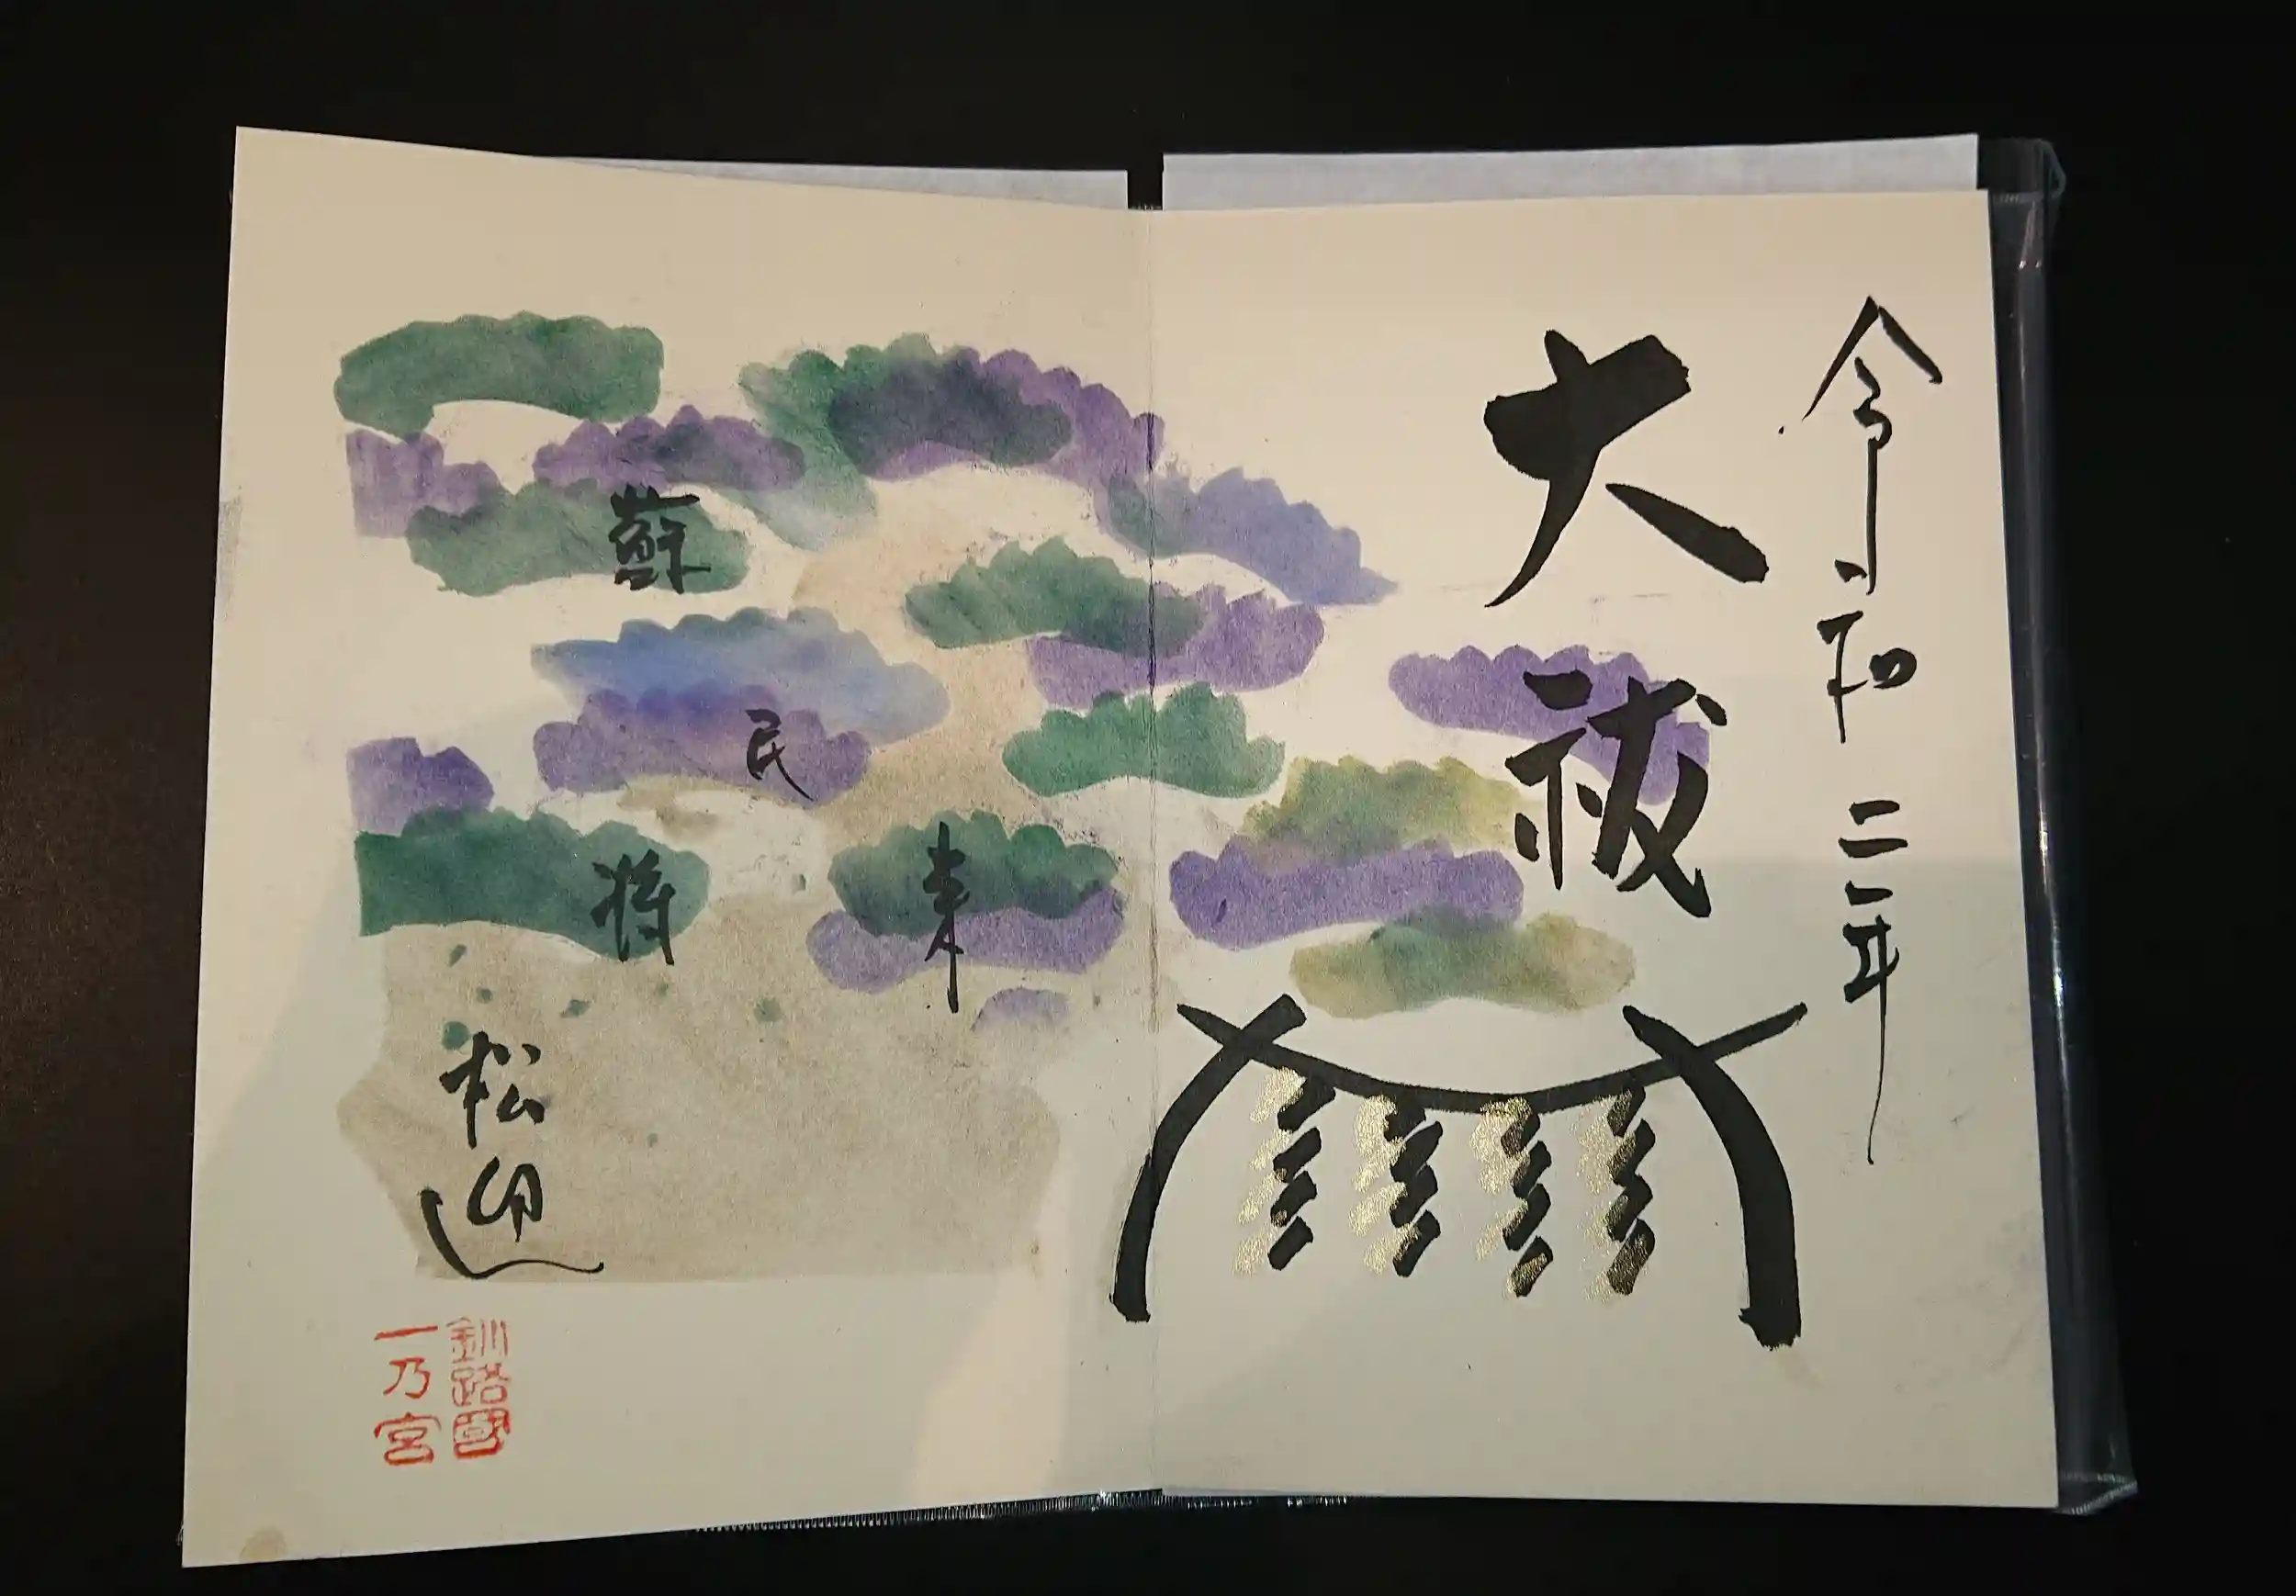 令和二年
大祓
蘇民将来
松迎
釧路國
一乃宮